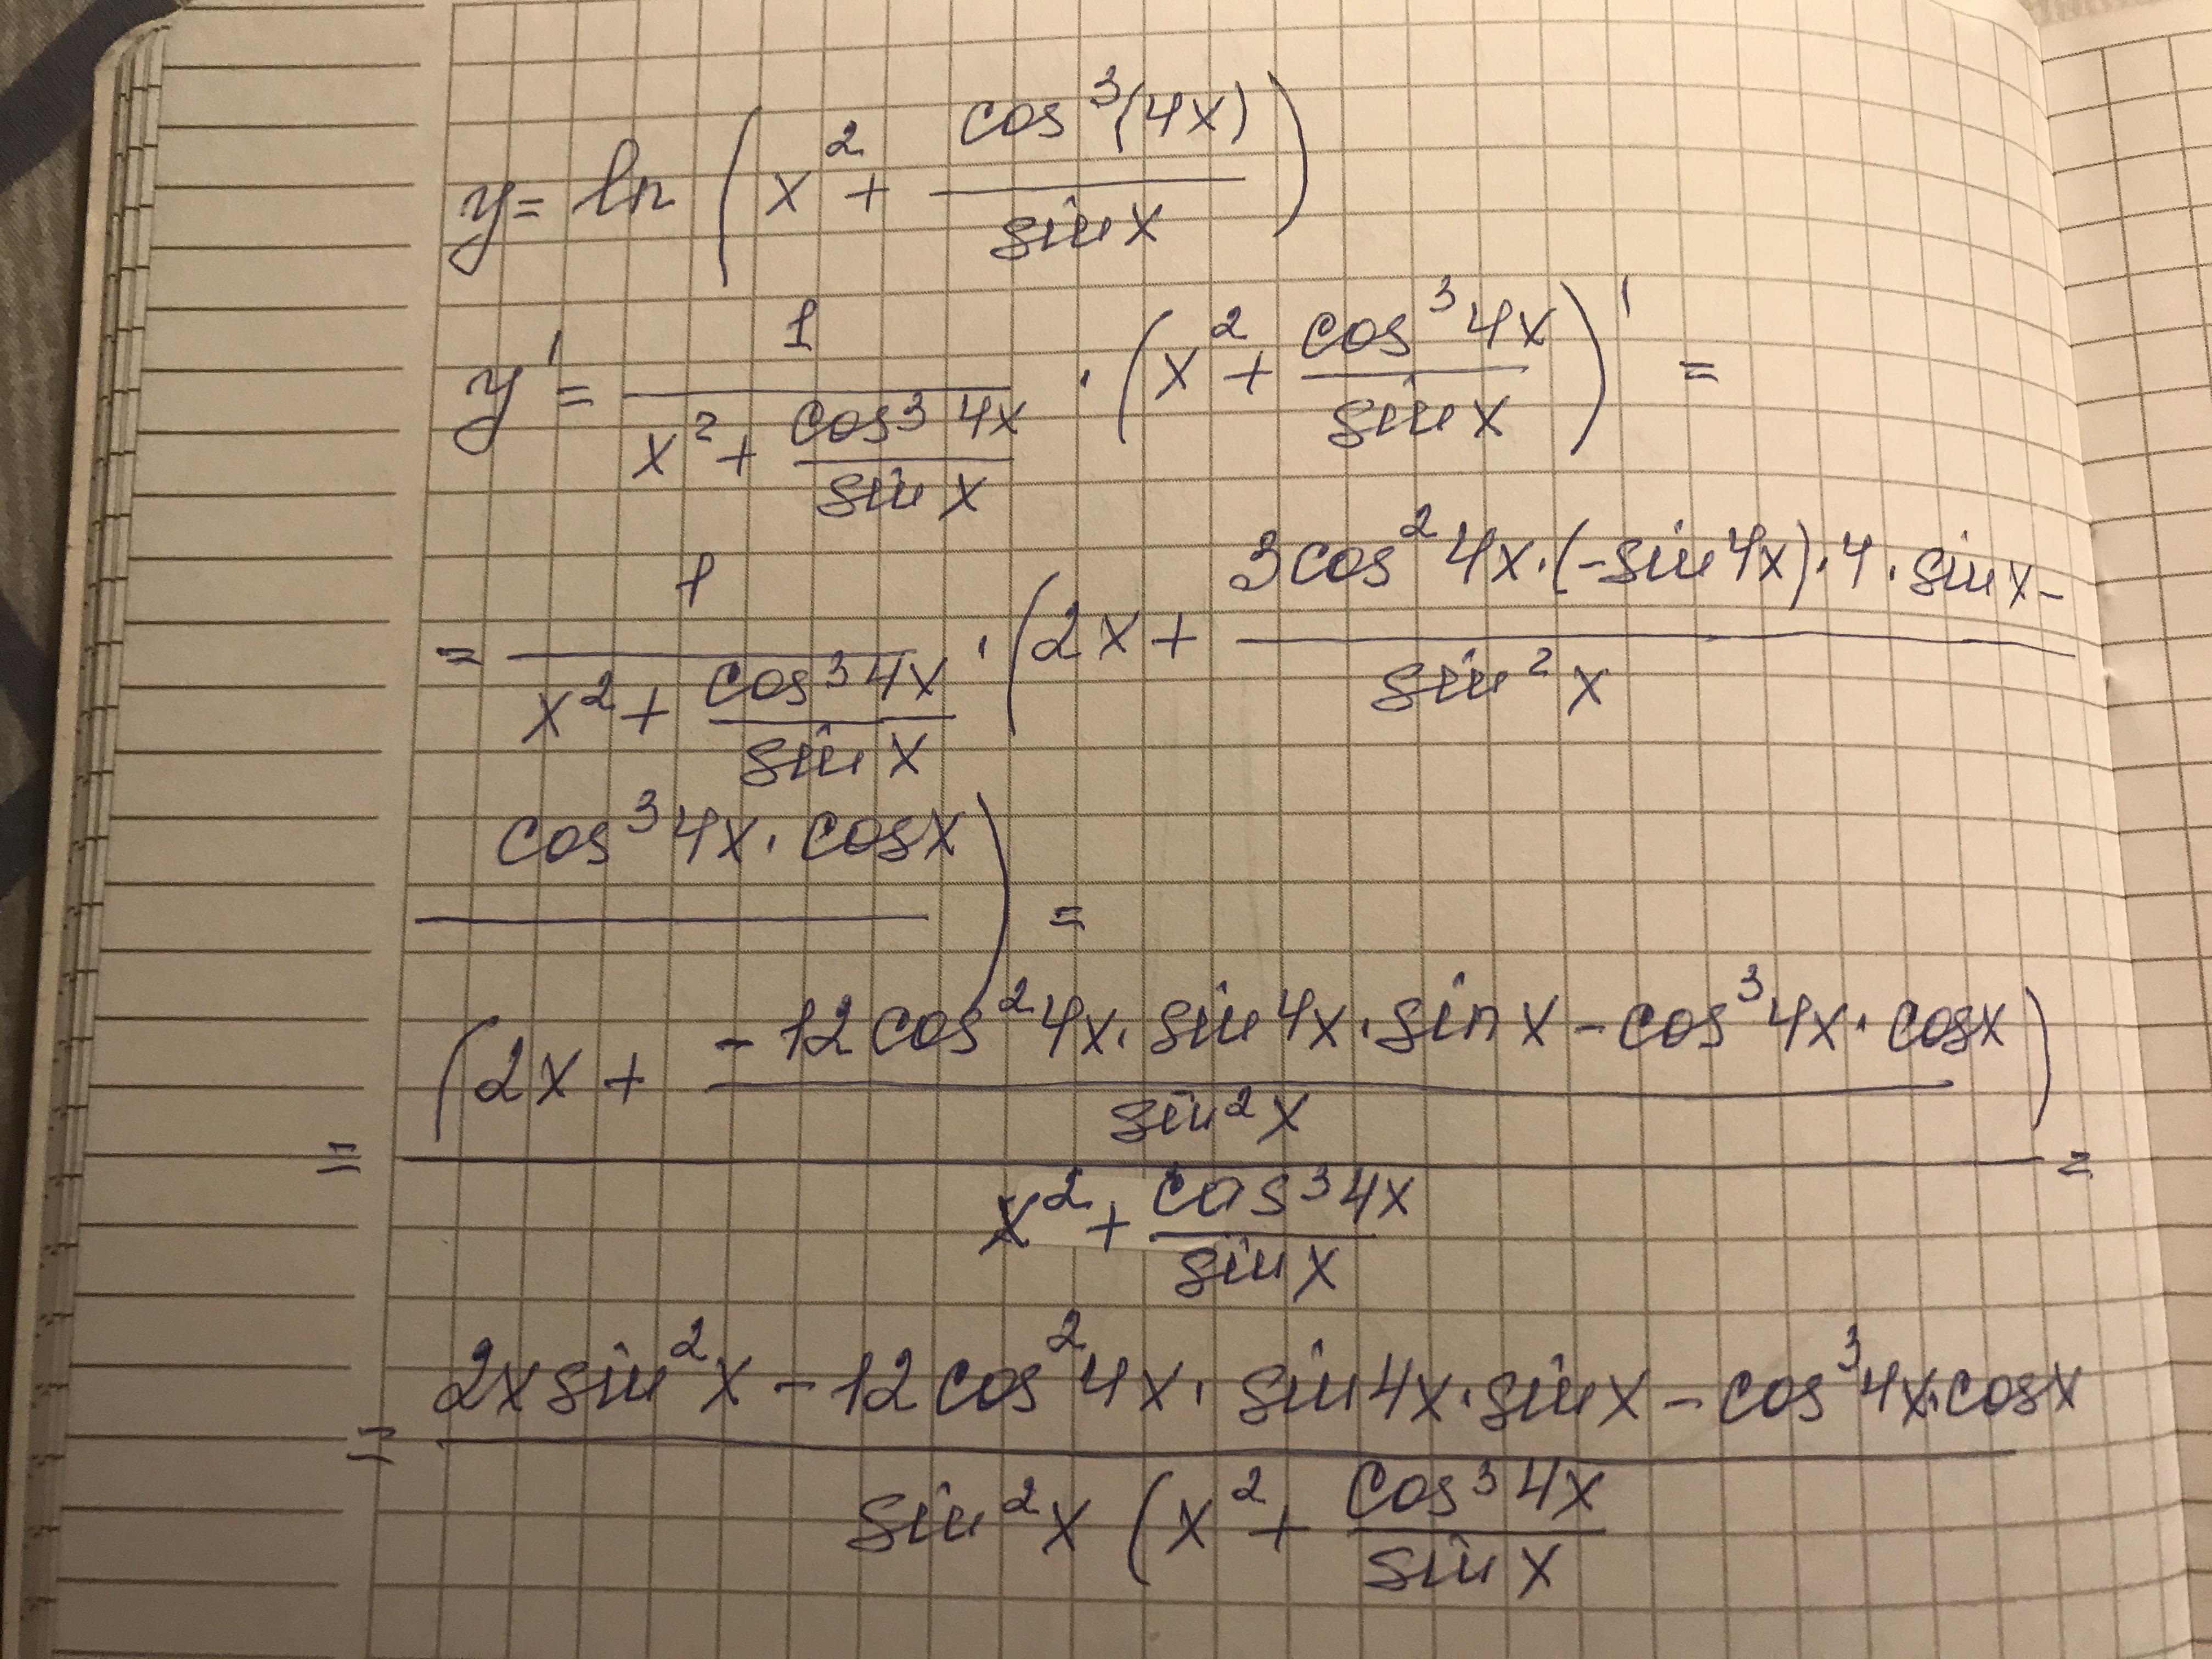 y = ln ( x² + cos³(4x) / sin x )
y' = 1 / ( x² + cos³ 4x / sin x ) · ( x² + cos³ 4x / sin x )' =
= 1 / ( x² + cos³ 4x / sin x ) · ( 2x + 3cos² 4x·(-sin 4x)·4·sin x - / sin² x
cos³ 4x · cos x ) =
= ( 2x + -12 cos² 4x · sin 4x · sin x - cos³ 4x · cos x / sin² x ) / x² + cos³ 4x / sin x =
= 2x sin² x - 12 cos² 4x · sin 4x · sin x - cos³ 4x · cos x / sin² x ( x² + cos³ 4x / sin x